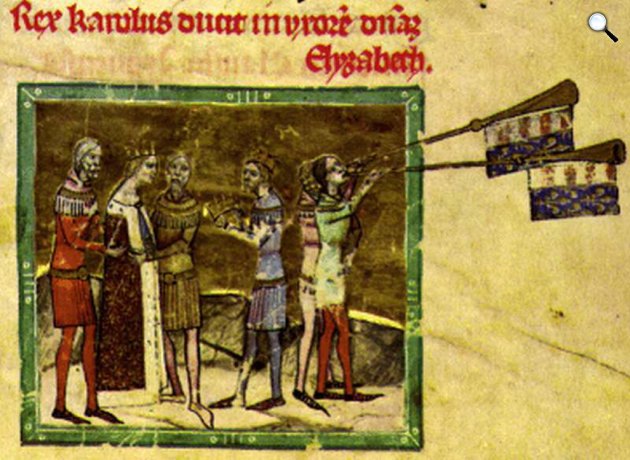 Rex karolus ducit in vxorē dn̄aʒ
Elyzabeth.